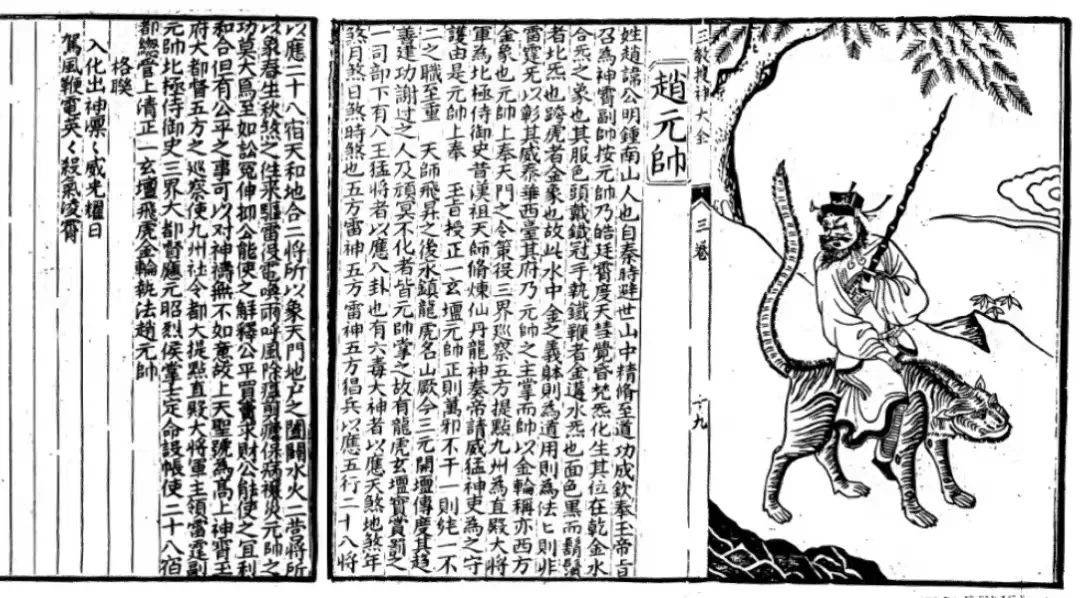 三教搜神大全
三卷
十九
趙元帥
姓趙諱公明鍾南山人也自秦時避世山中精脩至道功成欽奉玉帝旨
召為神霄副帥按元帥乃皓廷霄度天彗覺昏梵炁化生其位在乾金水
合炁之象也其服色頭戴鐵冠手執鐵鞭者金遘水炁也面色黑而鬍鬚
者北炁也跨虎者金象也故此水中金之義躰則為道用則為法匕則非
雷霆旡以彰其威泰華西臺其府乃元帥之主掌而帥以金輪稱亦西方
金象也元帥上奉天門之令策役三界巡察五方提點九州為直殿大將
軍為北極侍御史昔漢祖天師脩煉仙丹龍神奏帝請威猛神吏為之守
護由是元帥上奉　玉旨授正一玄壇元帥正則萬邪不干一則純一不
二之職至重　天師飛昇之後永鎮龍虎名山厥今三元開壇傳度其趨
善建功謝过之人及頑冥不化者皆元帥掌之故有龍虎玄壇實賞罰之
一司部下有八王猛將者以應八卦也有六毒大神者以應天煞地煞年
煞月煞日煞時煞也五方雷神五方雷神五方猖兵以應五行二十八將
以應二十八宿天和地合二將所以象天門地户之闔闢水火二營將所
以象春生秋煞之往来驅雷役電喚雨呼風除瘟剪瘧保病禳災元帥之
功莫大焉至如訟冤伸抑公能使之解釋公平買賣求財公能使之宜利
和合但有公平之事可以对神禱無不如意故上天聖號為高上神霄玉
府大都督五方之巡察使九州社令都大提點直殿大將軍主領雷霆副
元帥北極侍御史三界大都督應元昭烈侯掌士定命設帳使二十八宿
都總管上清正一玄壇飛虎金輪執法趙元帥
格聮
入化出神凜〻威光耀日
駕風鞭電英〻殺氣凌霄